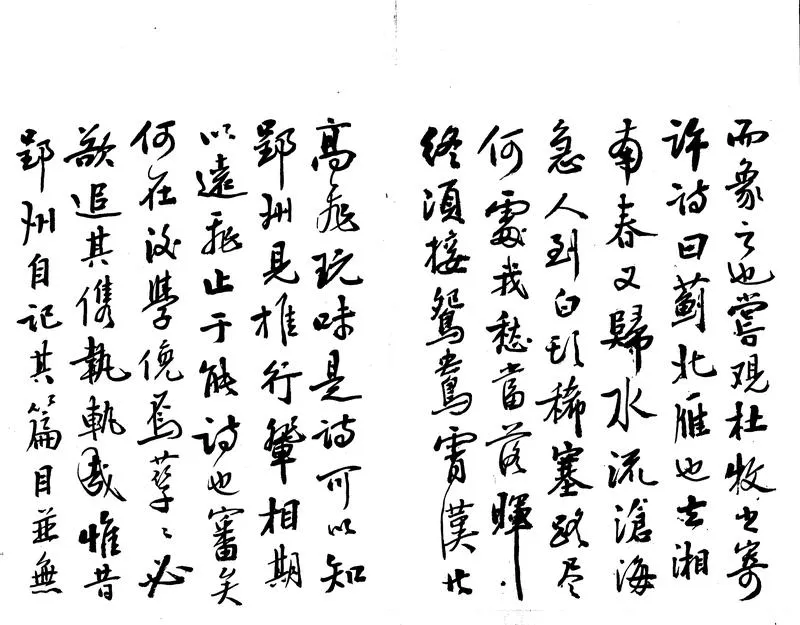 而象之也嘗观杜牧之寄
许诗曰薊北雁初去湘
南春又歸水流滄海
急人到白頭稀塞路尽
何處我愁當落暉
終須接鴛鷺霄漢共
高飛玩味是诗可以知
郢州見推行輩相期
以遠非止于能诗也審矣
何在後學俛焉孳〻必
欲追其儁執軌哉惟昔
郢州自记其篇目並無